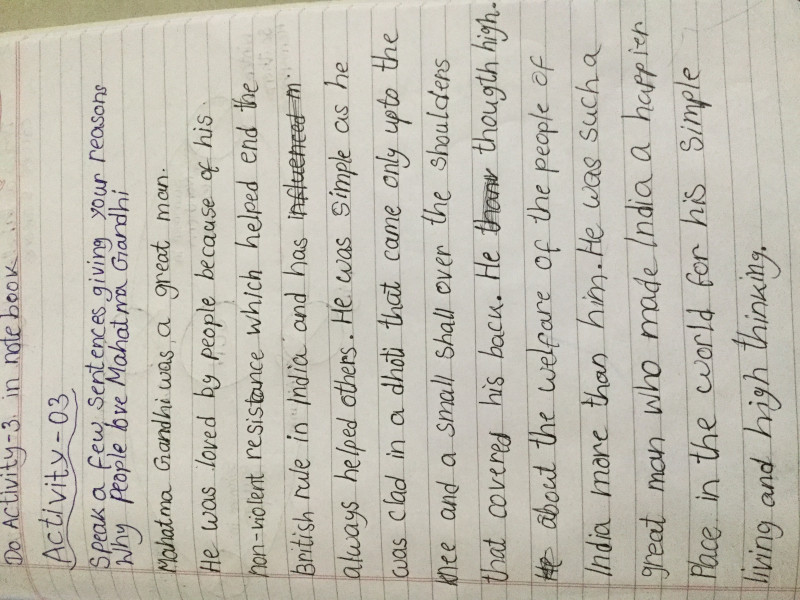 Do Activity-3 in notebook...
Activity-03
Speak a few sentences giving your reasons
Why people love Mahatma Gandhi
Mahatma Gandhi was a great man.
He was loved by people because of his
non-violent resistance which helped end the
British rule in India and has influenced m.
always helped others. He was simple as he
was clad in a dhoti that came only upto the
knee and a small shall over the shoulders
that covered his back. He thougth high.
about the welfare of the people of
India more than him. He was such a
great man who made India a happier
Place in the world for his simple
living and high thinking.